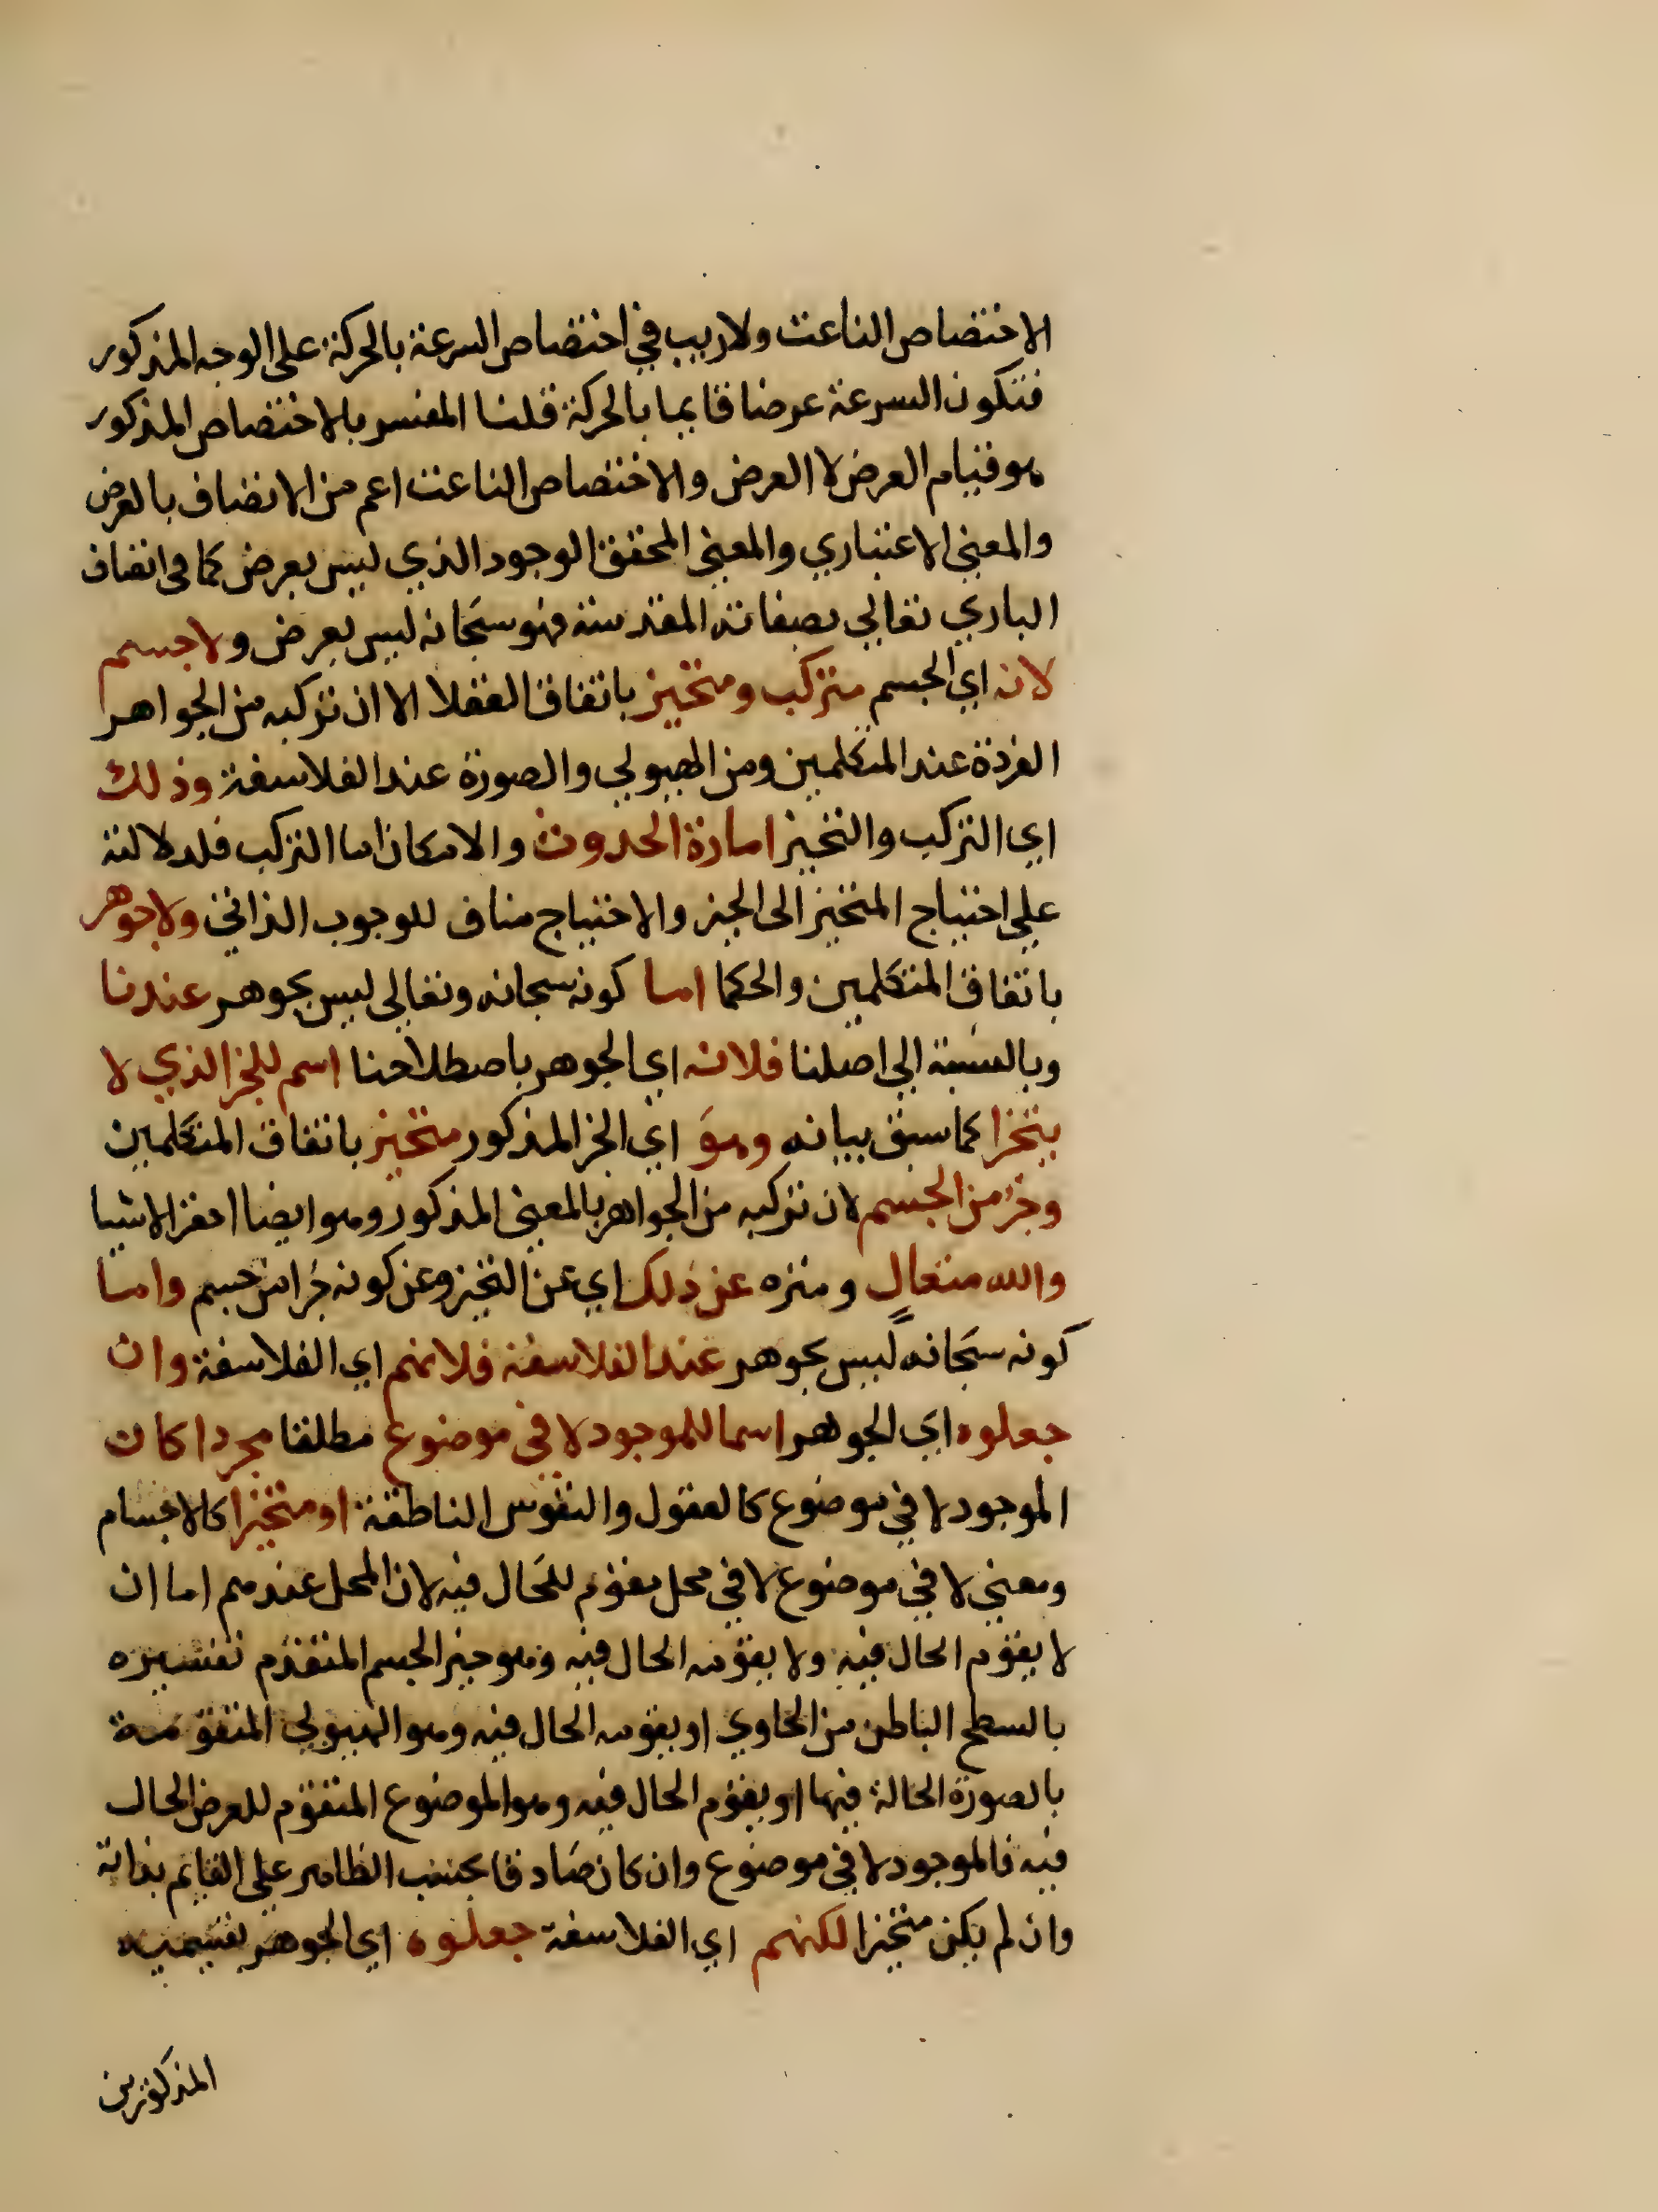 الاختصاص الناعت ولا ريب في اختصاص السرعة بالحركة على الوجه المذكور
فتكون السرعة عرضا قايما بالحركة قلنا المفسر بالاختصاص المذكور
هو قيام العرض لا العرض والاختصاص الناعت اعم من الاتصاف بالعرض
والمعنى الاعتباري والمعنى المحقق الوجود الذي ليس بعرض كما في اتصاف
الباري تعالي بصفاته المقدسة فهو سبحانه ليس بعرض ولا جسم
لانه اي الجسم متركب ومتحيز باتفاق العقلا الا ان تركبه من الجواهر
الفردة عند المتكلمين ومن الهيولي والصورة عند الفلاسفة وذلك
اي التركب والتحيز امارة الحدوث والامكان اما التركب فلدلالته
علي احتياج المتحيز الى الحيز والاحتياج مناف للوجوب الذاتي ولا جوهر
باتفاق المتكلمين والحكما اما كونه سبحانه وتعالى ليس بجوهر عندنا
وبالنسبة الي اصلنا فلانه اي الجوهر باصطلاحنا اسم للجز الذي لا
يتجزا كما سبق بيانه وهو اي الجز المذكور متحيز باتفاق المتكلمين
وجز من الجسم لان تركبه من الجواهر بالمعنى المذكور وهو ايضا احقر الاشيا
والله متعال ومنزه عن ذلك اي عن التحيز وعن كونه جزا من جسم واما
كونه سبحانه ليس بجوهر عند الفلاسفة فلانهم اي الفلاسفة وان
جعلوه اي الجوهر اسما للموجود لا في موضوع مطلقا مجردا كان
الموجود لا في موضوع كالعقول والنفوس الناطقة او متحيزا كالاجسام
ومعني لا في موضوع لا في محل مقوم للحال فيه لان المحل عندهم اما ان
لا يقوم الحال فيه ولا يقومه الحال فيه وهو حيز الجسم المتقدم تفسيره
بالسطح الباطن من الحاوي او يقومه الحال فيه وهو الهيولي المتقومة
بالصورة الحالة فيها او يقوم الحال فيه وهو الموضوع المتقوم للعرض الحال
فيه فالموجود لا في موضوع وان كان صادقا بحسب الظاهر علي القايم بذاته
وان لم يكن متحيزا لكنهم اي الفلاسفة جعلوه اي الجوهر بقسميه
المذكورين